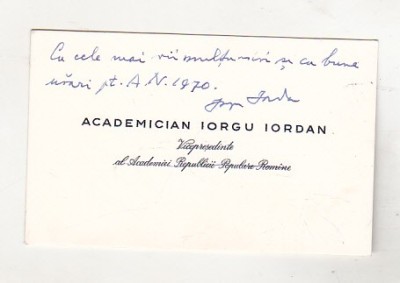 Cu cele mai vii mulțumiri și cu bune
urări pt. A.N. 1970.
Iorgu Iordan
ACADEMICIAN IORGU IORDAN
Vicepreședinte
al Academiei Republicii Populare Romîne